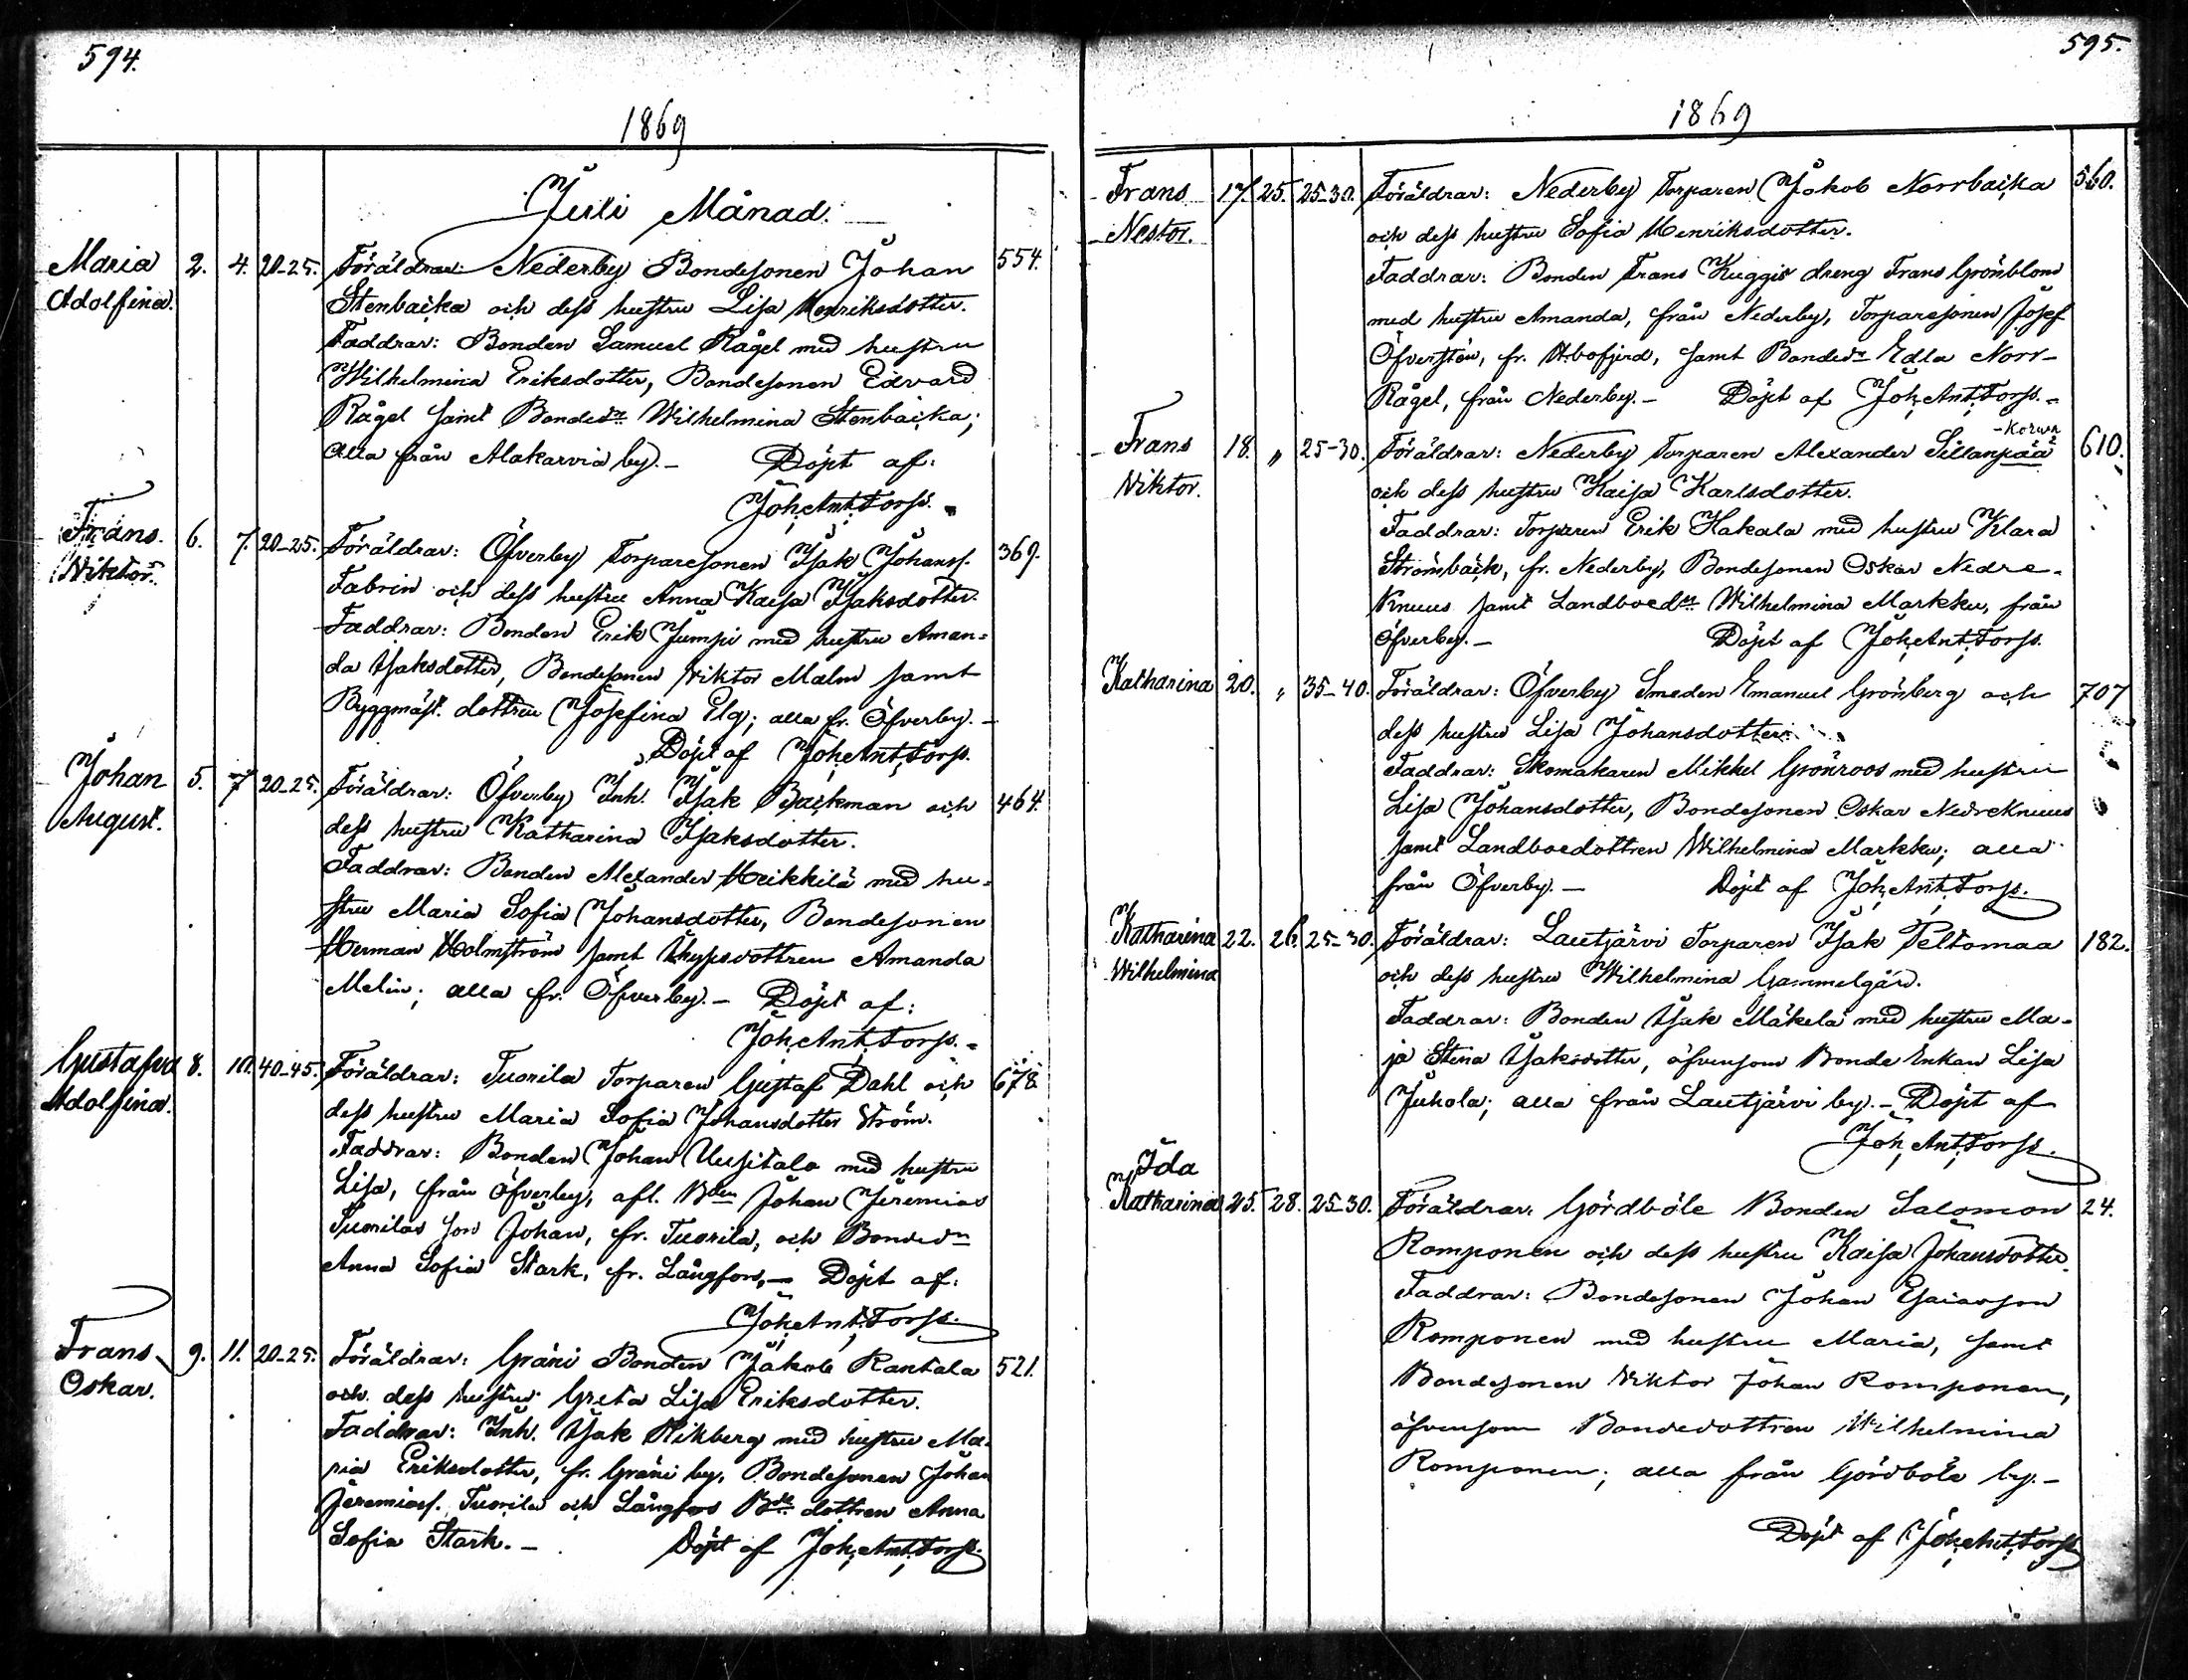 594.
1869
Juli Månad.
Maria 2. 4. 20-25. Föräldrar: Nederby Bondesonen Johan 554.
Adolfina. Stenbacka och dess hustru Lisa Henriksdotter.
Faddrar: Bonden Samuel Rågel med hustru
Wilhelmina Eriksdotter, Bondesonen Edvard
Rågel samt Bondedn Wilhelmina Stenbacka;
alla från Alakarvia by. – Döpt af:
Joh. Ant. Forss.
Frans 6. 7. 20-25. Föräldrar: Öfverby Torparesonen Isak Johanss. 369.
Viktor. Fabrin och dess hustru Anna Kaisa Isaksdotter.
Faddrar: Bonden Erik Jumpi med hustru Aman-
da Isaksdotter, Bondesonen Viktor Malm samt
Byggmäst. dottren Josefina Elg; alla fr. Öfverby. –
Döpt af Joh. Ant. Forss.
Johan 5. 7 20-25. Föräldrar: Öfverby Inh. Isak Backman och 464.
August. dess hustru Katharina Isaksdotter.
Faddrar: Bonden Alexander Heikkilä med hu-
stru Maria Sofia Johansdotter, Bondesonen
Herman Holmström samt dottren Amanda
Melin; alla fr. Öfverby. – Döpt af:
Joh. Ant. Forss. –
Gustafva 8. 10. 40-45. Föräldrar: Tuorila Torparen Gustaf Dahl och 678
Adolfina. dess hustru Maria Sofia Johansdotter Ström.
Faddrar: Bonden Johan Uusitalo med hustru
Lisa, från Öfverby, afl. Bden Johan Jeremias
Tuorilas son Johan, fr. Tuorila, och Bondedn
Anna Sofia Stark, fr. Långfors, – Döpt af:
Joh. Ant. Forss.
Frans 9. 11. 20-25. Föräldrar: Gräni Bonden Jakob Rantala 521.
Oskar. och dess hustru Greta Lisa Eriksdotter.
Faddrar: Inh. Isak Wikberg med hustru Ma-
ria Eriksdotter, fr. Gräni by, Bondesonen Johan
Jeremiass. Tuorila och Långfors Bde dottren Anna
Sofia Stark. – Döpt af Joh. Ant. Forss.
595.
1869
Frans 17. 25. 25-30. Föräldrar: Nederby Torparen Jakob Norrbacka 560.
Nestor. och dess hustru Sofia Henriksdotter.
Faddrar: Bonden Frans Kuggis dreng Frans Grönblom
med hustru Amanda, från Nederby, Torparesonen Josef
Öfverstön, fr. fjerd, samt Bondedn Edla Norr-
Rågel, från Nederby. – Döpt af Joh. Ant. Forss. –
-Korwa
Frans 18. „ 25-30. Föräldrar: Nederby Torparen Alexander Sillanpää 610.
Viktor. och dess hustru Kaisa Karlsdotter.
Faddrar: Torparen Erik Hakala med hustru Klara
Strömbäck, fr. Nederby, Bondesonen Oskar Nedre-
Knuus samt Landboedn Wilhelmina Markku, från
Öfverby. – Döpt af Joh. Ant. Forss.
Katharina 20. „ 35-40. Föräldrar: Öfverby Smeden Emanuel Grönberg och 707
dess hustru Lisa Johansdotter.
Faddrar: Skomakaren Mikkel Grönroos med hustru
Lisa Johansdotter, Bondesonen Oskar NedreKnuus
samt Landboedottren Wilhelmina Markku; alla
från Öfverby. – Döpt af Joh. Ant. Forss.
Katharina 22. 26. 25-30. Föräldrar: Lautjärvi Torparen Isak Peltomaa 182.
Wilhelmina och dess hustru Wilhelmina Gammelgård.
Faddrar: Bonden Isak Mäkelä med hustru Ma-
ja Stina Isaksdotter, äfvensom Bonde Enkan Lisa
Juhola; alla från Lautjärvi by. – Döpt af
Joh. Ant. Forss.
Ida
Katharina 25. 28. 25-30. Föräldrar: Gördböle Bonden Salomon 24.
Romponen och dess hustru Kaisa Johansdotter.
Faddrar: Bondesonen Johan Esaiasson
Romponen med hustru Maria, samt
Bondesonen Viktor Johan Romponen,
äfvensom Bondedottren Wilhelmina
Romponen; alla från Gördböle by. –
Döpt af Joh. Ant. Forss